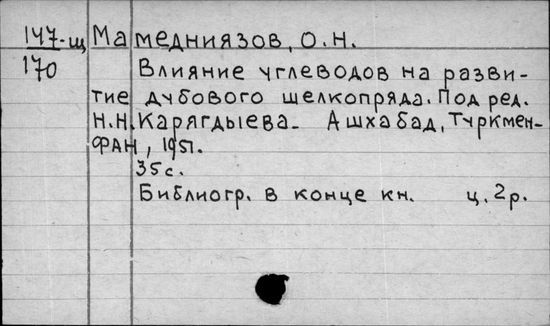 147-щ Мамедниязов, О.Н.
170 Влияние углеводов на разви-
тие дубового шелкопряда. Под ред.
Н.Н. Карягдыева. Ашхабад, Туркмен-
ФАН, 1951.
35 с.
Библиогр. в конце кн. ц. 2 р.